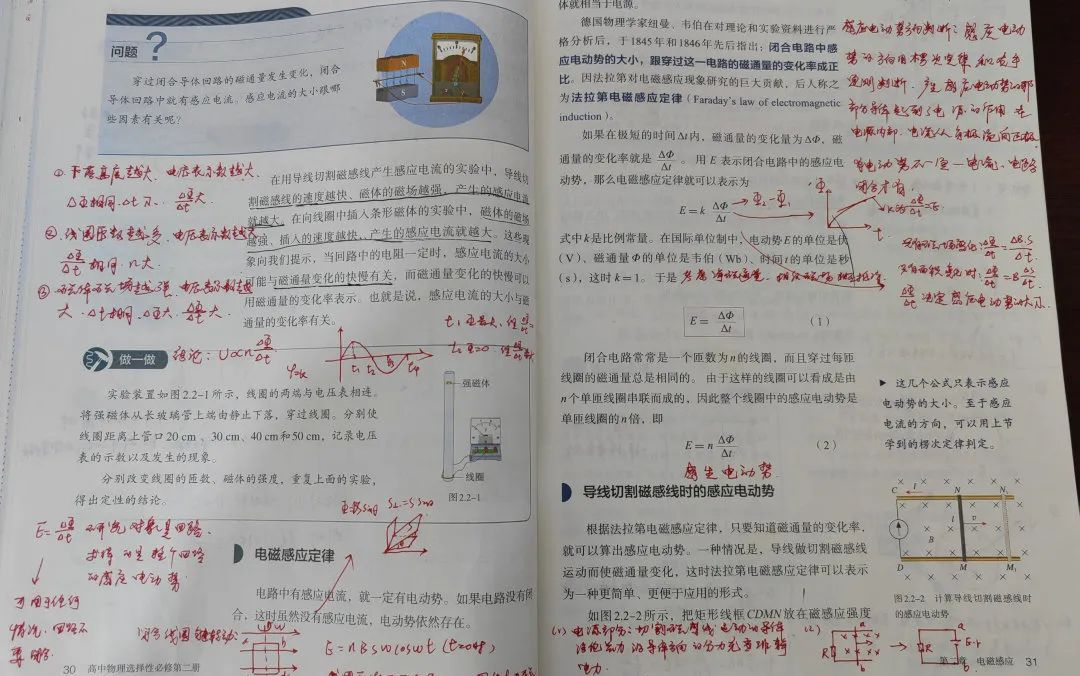 问题 ?
穿过闭合导体回路的磁通量发生变化，闭合
导体回路中就有感应电流。感应电流的大小跟哪
些因素有关呢？
N
S
①下落高度越大，电压表示数越大.
ΔΦ相同.Δt小.ΔΦ/Δt大
②线圈匝数越多，电压表示数越大
ΔΦ/Δt相同.n大.
③磁体磁场越强，电压表示数越
大.Δt相同.ΔΦ大.ΔΦ/Δt大.
在用导线切割磁感线产生感应电流的实验中，导线切
割磁感线的速度越快、磁体的磁场越强，产生的感应电流
就越大。在向线圈中插入条形磁体的实验中，磁体的磁场
越强、插入的速度越快，产生的感应电流就越大。这些现
象向我们提示，当回路中的电阻一定时，感应电流的大小
可能与磁通量变化的快慢有关，而磁通量变化的快慢可以
用磁通量的变化率表示。也就是说，感应电流的大小与磁
通量的变化率有关。
做一做
结论：U∝nΔΦ/Δt
实验装置如图2.2-1所示，线圈的两端与电压表相连。
将强磁体从长玻璃管上端由静止下落，穿过线圈。分别使
线圈距离上管口20 cm、30 cm、40 cm和50 cm，记录电压
表的示数以及发生的现象。
分别改变线圈的匝数、磁体的强度，重复上面的实验，
得出定性的结论。
强磁体
线圈
图2.2-1
E=ΔΦ/Δt 研究对象是回路.
求得的是整个回路
的感应电动势.
可用于任何
情况.回路不
要闭合
电磁感应定律
电路中有感应电流，就一定有电动势。如果电路没有闭
合，这时虽然没有感应电流，电动势依然存在。
E=nBSωcosωt (t=0时)
30 高中物理选择性必修第二册
体就相当于电源。
德国物理学家纽曼、韦伯在对理论和实验资料进行严
格分析后，于1845年和1846年先后指出：闭合电路中感
应电动势的大小，跟穿过这一电路的磁通量的变化率成正
比。因法拉第对电磁感应现象研究的巨大贡献，后人称之
为法拉第电磁感应定律（Faraday's law of electromagnetic
induction）。
如果在极短的时间Δt内，磁通量的变化量为ΔΦ，磁
通量的变化率就是ΔΦ/Δt。用E表示闭合电路中的感应电
动势，那么电磁感应定律就可以表示为
E=k ΔΦ/Δt
→Φ₂-Φ₁
式中k是比例常量。在国际单位制中，电动势E的单位是伏
（V）、磁通量Φ的单位是韦伯（Wb）、时间t的单位是秒
（s），这时k=1。于是
E= ΔΦ/Δt （1）
闭合电路常常是一个匝数为n的线圈，而且穿过每匝
线圈的磁通量总是相同的。由于这样的线圈可以看成是由
n个单匝线圈串联而成的，因此整个线圈中的感应电动势是
单匝线圈的n倍，即
E=n ΔΦ/Δt （2）
感生电动势.
感应电动势方向判断：感应电动
势的方向用楞次定律和右手
定则判断.产生感应电动势的那
部分导体起到了电源的作用.在
电源内部.电流从负极流向正极
有电动势不一定一电流.电路
闭合才有
Φ
t
ΔΦ/Δt决定感应电动势的大小.
▶ 这几个公式只表示感应
电动势的大小。至于感应
电流的方向，可以用上节
学到的楞次定律判定。
导线切割磁感线时的感应电动势
根据法拉第电磁感应定律，只要知道磁通量的变化率，
就可以算出感应电动势。一种情况是，导线做切割磁感线
运动而使磁通量变化，这时法拉第电磁感应定律可以表示
为一种更简单、更便于应用的形式。
如图2.2-2所示，把矩形线框CDMN放在磁感应强度
C I N N₁
l v
B
D M M₁
图2.2-2 计算导线切割磁感线时
的感应电动势
(2)
a
R
b
a
R
E.r
b
第二章 电磁感应 31